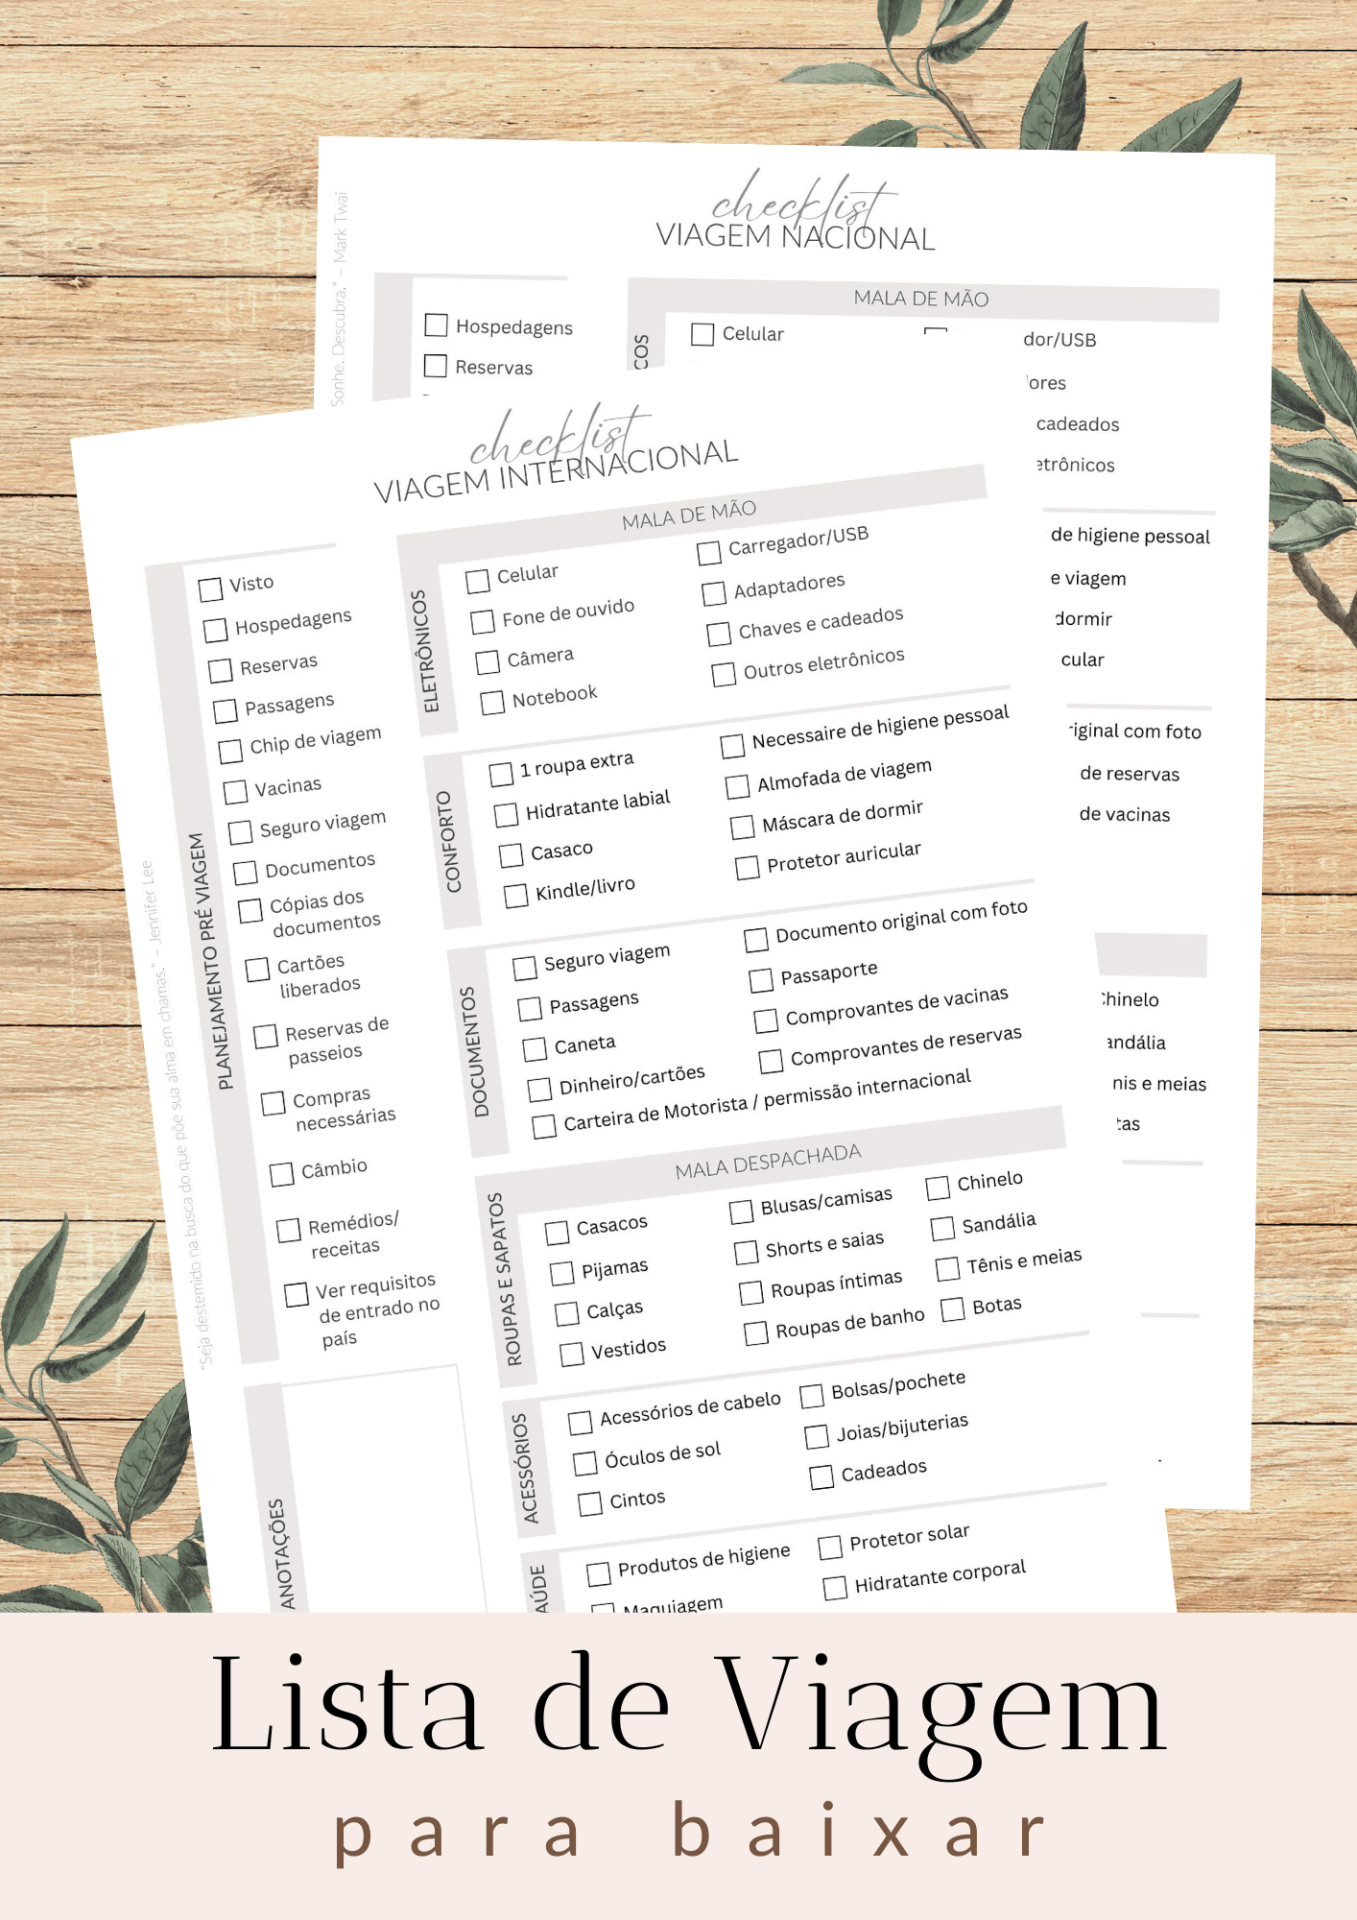 checklist
VIAGEM NACIONAL
Sonhe. Descubra." – Mark Twai
MALA DE MÃO
Hospedagens
Reservas
COS
Celular
dor/USB
ores
cadeados
etrônicos
de higiene pessoal
e viagem
dormir
cular
iginal com foto
de reservas
de vacinas
Chinelo
andália
nis e meias
tas
checklist
VIAGEM INTERNACIONAL
"Seja destemido na busca do que põe sua alma em chamas." – Jennifer Lee
PLANEJAMENTO PRÉ VIAGEM
Visto
Hospedagens
Reservas
Passagens
Chip de viagem
Vacinas
Seguro viagem
Documentos
Cópias dos
documentos
Cartões
liberados
Reservas de
passeios
Compras
necessárias
Câmbio
Remédios/
receitas
Ver requisitos
de entrado no
país
ANOTAÇÕES
MALA DE MÃO
ELETRÔNICOS
Celular
Fone de ouvido
Câmera
Notebook
Carregador/USB
Adaptadores
Chaves e cadeados
Outros eletrônicos
CONFORTO
1 roupa extra
Hidratante labial
Casaco
Kindle/livro
Necessaire de higiene pessoal
Almofada de viagem
Máscara de dormir
Protetor auricular
DOCUMENTOS
Seguro viagem
Passagens
Caneta
Dinheiro/cartões
Documento original com foto
Passaporte
Comprovantes de vacinas
Comprovantes de reservas
Carteira de Motorista / permissão internacional
MALA DESPACHADA
ROUPAS E SAPATOS
Casacos
Pijamas
Calças
Vestidos
Blusas/camisas
Shorts e saias
Roupas íntimas
Roupas de banho
Chinelo
Sandália
Tênis e meias
Botas
ACESSÓRIOS
Acessórios de cabelo
Óculos de sol
Cintos
Bolsas/pochete
Joias/bijuterias
Cadeados
AÚDE
Produtos de higiene
Maquiagem
Protetor solar
Hidratante corporal
Lista de Viagem
para baixar